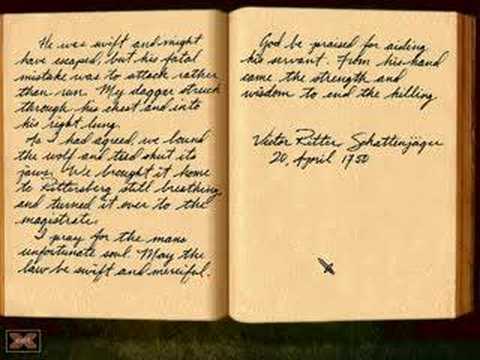 He was swift and might
have escaped, but his fatal
mistake was to attack rather
than run. My dagger struck
through his chest and into
his right lung.
As I had agreed, we bound
the wolf and tied shut its
jaws. We brought it home
to Rittersberg still breathing,
and turned it over to the
magistrate.
I pray for the mans
unfortunate soul. May the
law be swift and merciful.
God be praised for aiding
his servant. From his hand
came the strength and
wisdom to end the killing
Victor Ritter Schattenjäger
20, April 1750